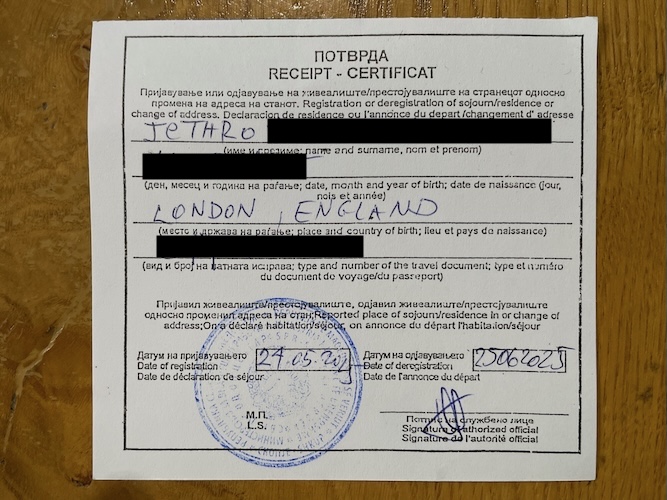 ПОТВРДА
RECEIPT - CERTIFICAT
Пријавување или одјавување на живеалиште/престојувалиште на странецот односно
промена на адреса на станот. Registration or deregistration of sojourn/residence or
change of address. Declaracion de residence ou l'annonce du depart /changement d' adresse
JETHRO
(име и презиме; name and surname, nom et prenom)
(ден, месец и година на раѓање; date, month and year of birth; date de naissance (jour,
nois et année)
LONDON, ENGLAND
(место и држава на раѓање; place and country of birth; lieu et pays de naissance)
(вид и број на патната исправа; type and number of the travel document; type et numéro
du document de voyage/du passeport)
Пријавил живеалиште/престојувалиште, одјавил живеалиште/престојувалиште
односно променил адреса на стан;Reported place of sojourn/residence in or change of
address;On a déclaré habitation/séjour, on annonce du départ l'habitaion/séjour
Датум на пријавувањето
Date of registration
Date de déclaration de séjour
24.05.2025
Датум на одјавувањето
Date of deregistration
Date de l'annonce du départ
25062025
М.П.
L.S.
Потпис на службено лице
Signature of authorized official
Signature de l'autorité official